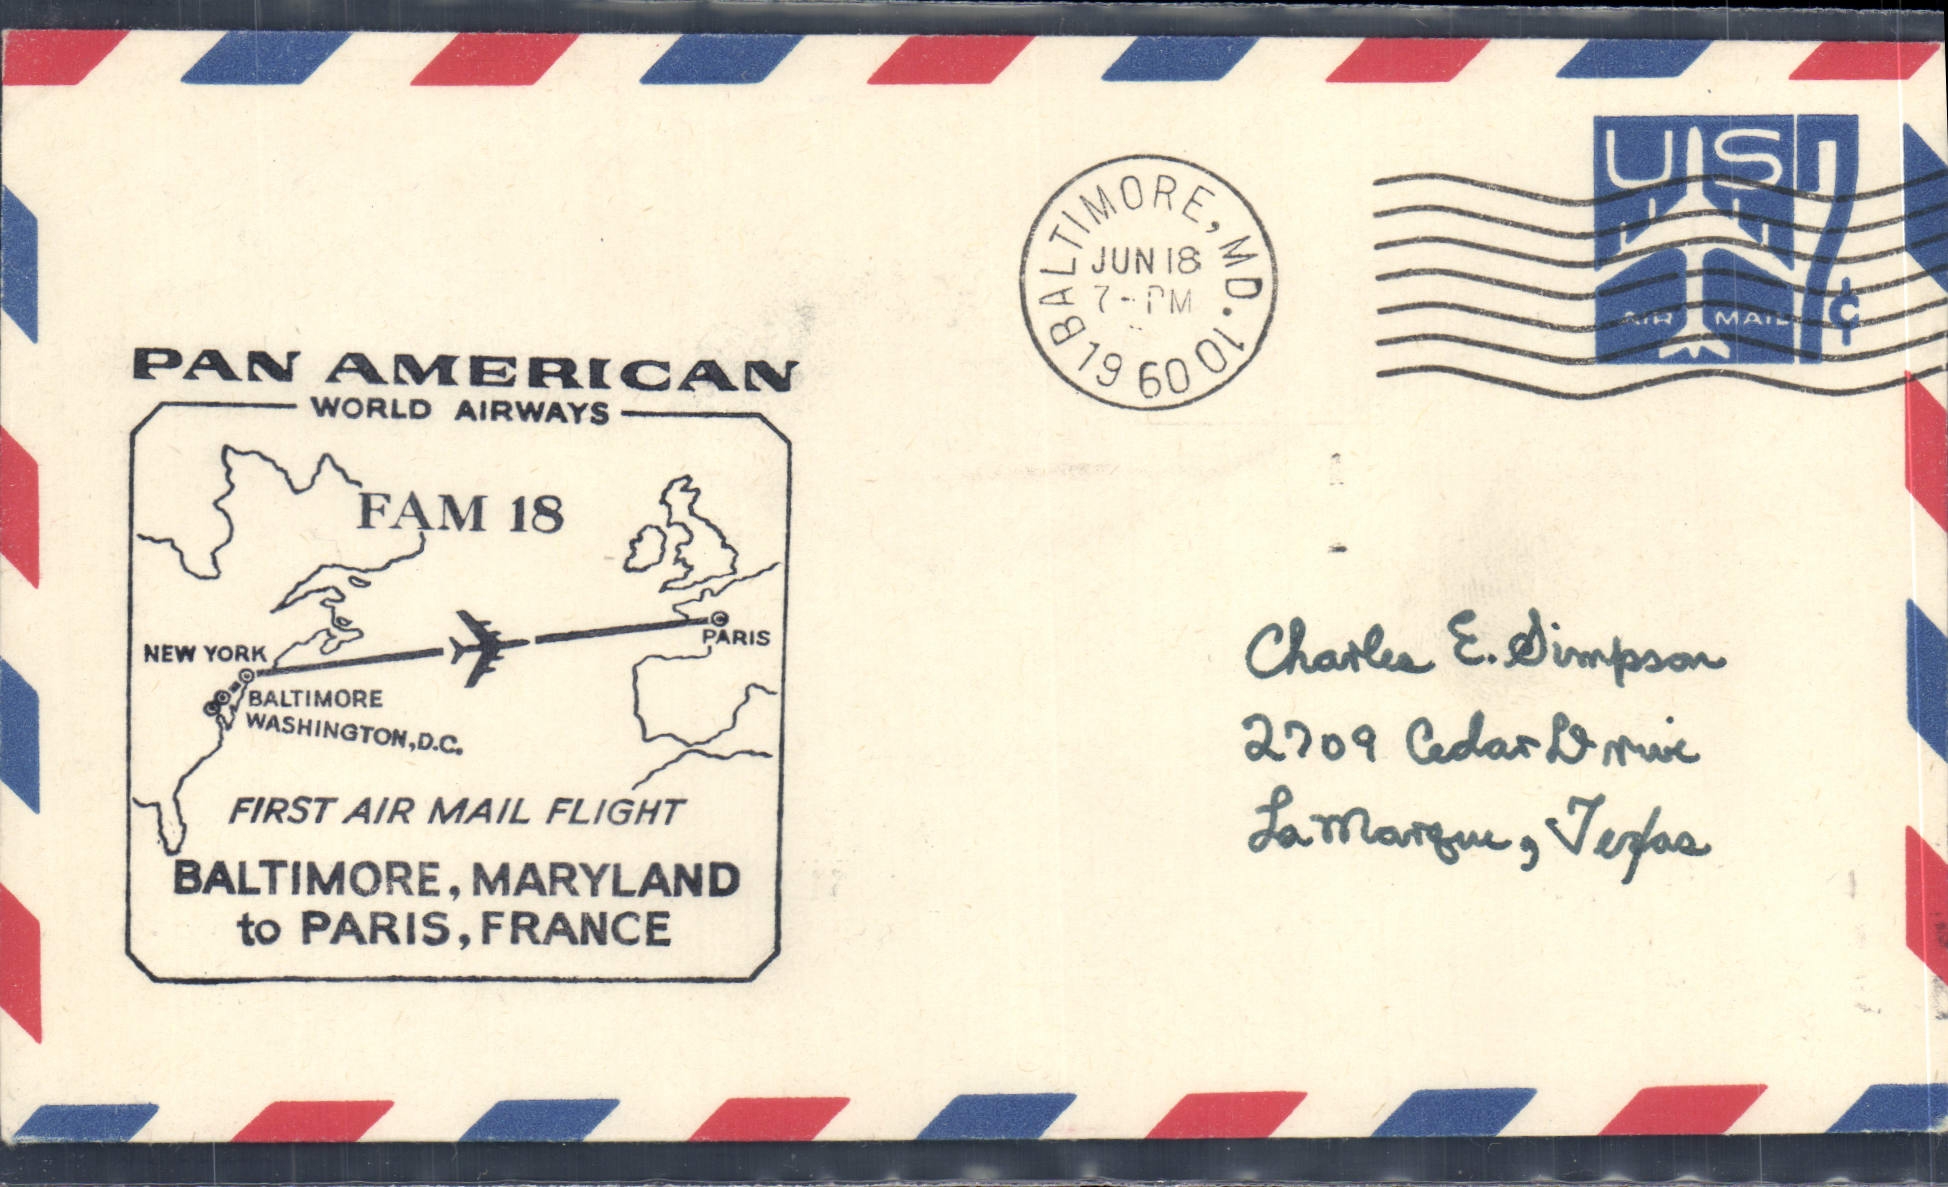 PAN AMERICAN
WORLD AIRWAYS
FAM 18
NEW YORK
BALTIMORE
WASHINGTON, D.C.
PARIS
FIRST AIR MAIL FLIGHT
BALTIMORE, MARYLAND
to PARIS, FRANCE
BALTIMORE, MD. 10
JUN 18
7 - PM
1960
US 7¢
AIR MAIL
Charles E. Simpson
2709 Cedar Drive
La Marque, Texas